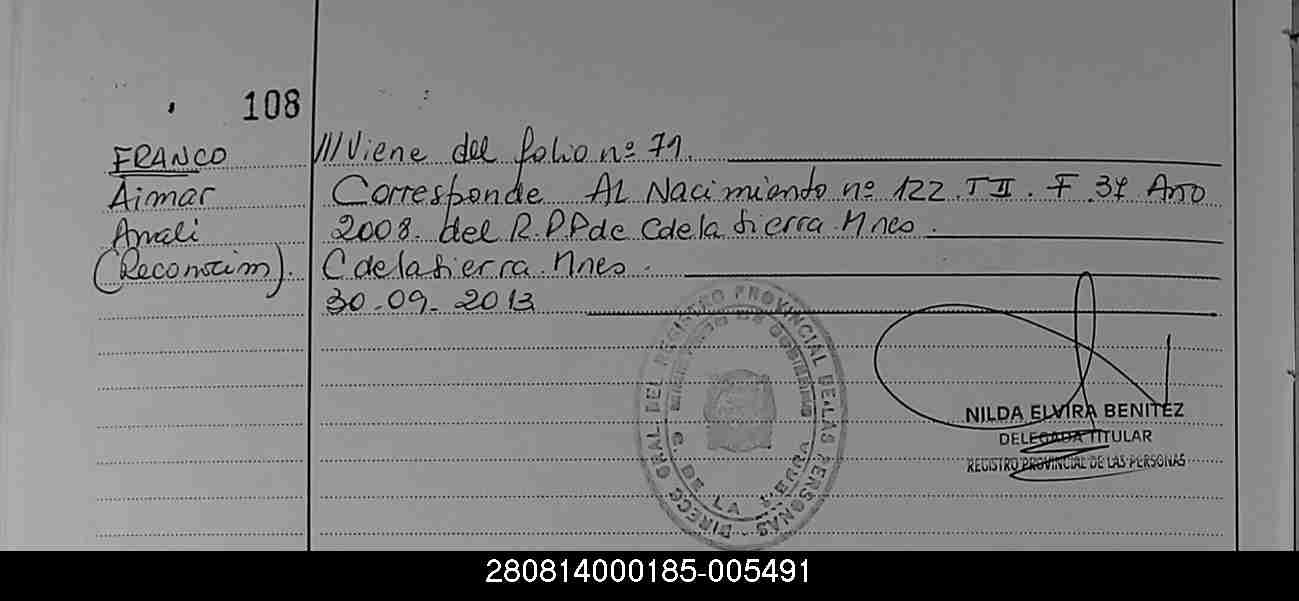 108
FRANCO
Aimar
Anali
(Reconocim).
///Viene del folio nº 71.
Corresponde AL Nacimiento nº 122. TII. F. 37 Año
2008. del R.P.P de C de la Sierra. Mnes.
C de la Sierra. Mnes.
30-09-2013
DIRECC GRAL. DEL REGISTRO PROVINCIAL DE LAS PERSONAS
MINISTERIO DE GOBIERNO
C. DE LA
NILDA ELVIRA BENITEZ
DELEGADA TITULAR
REGISTRO PROVINCIAL DE LAS PERSONAS
280814000185-005491